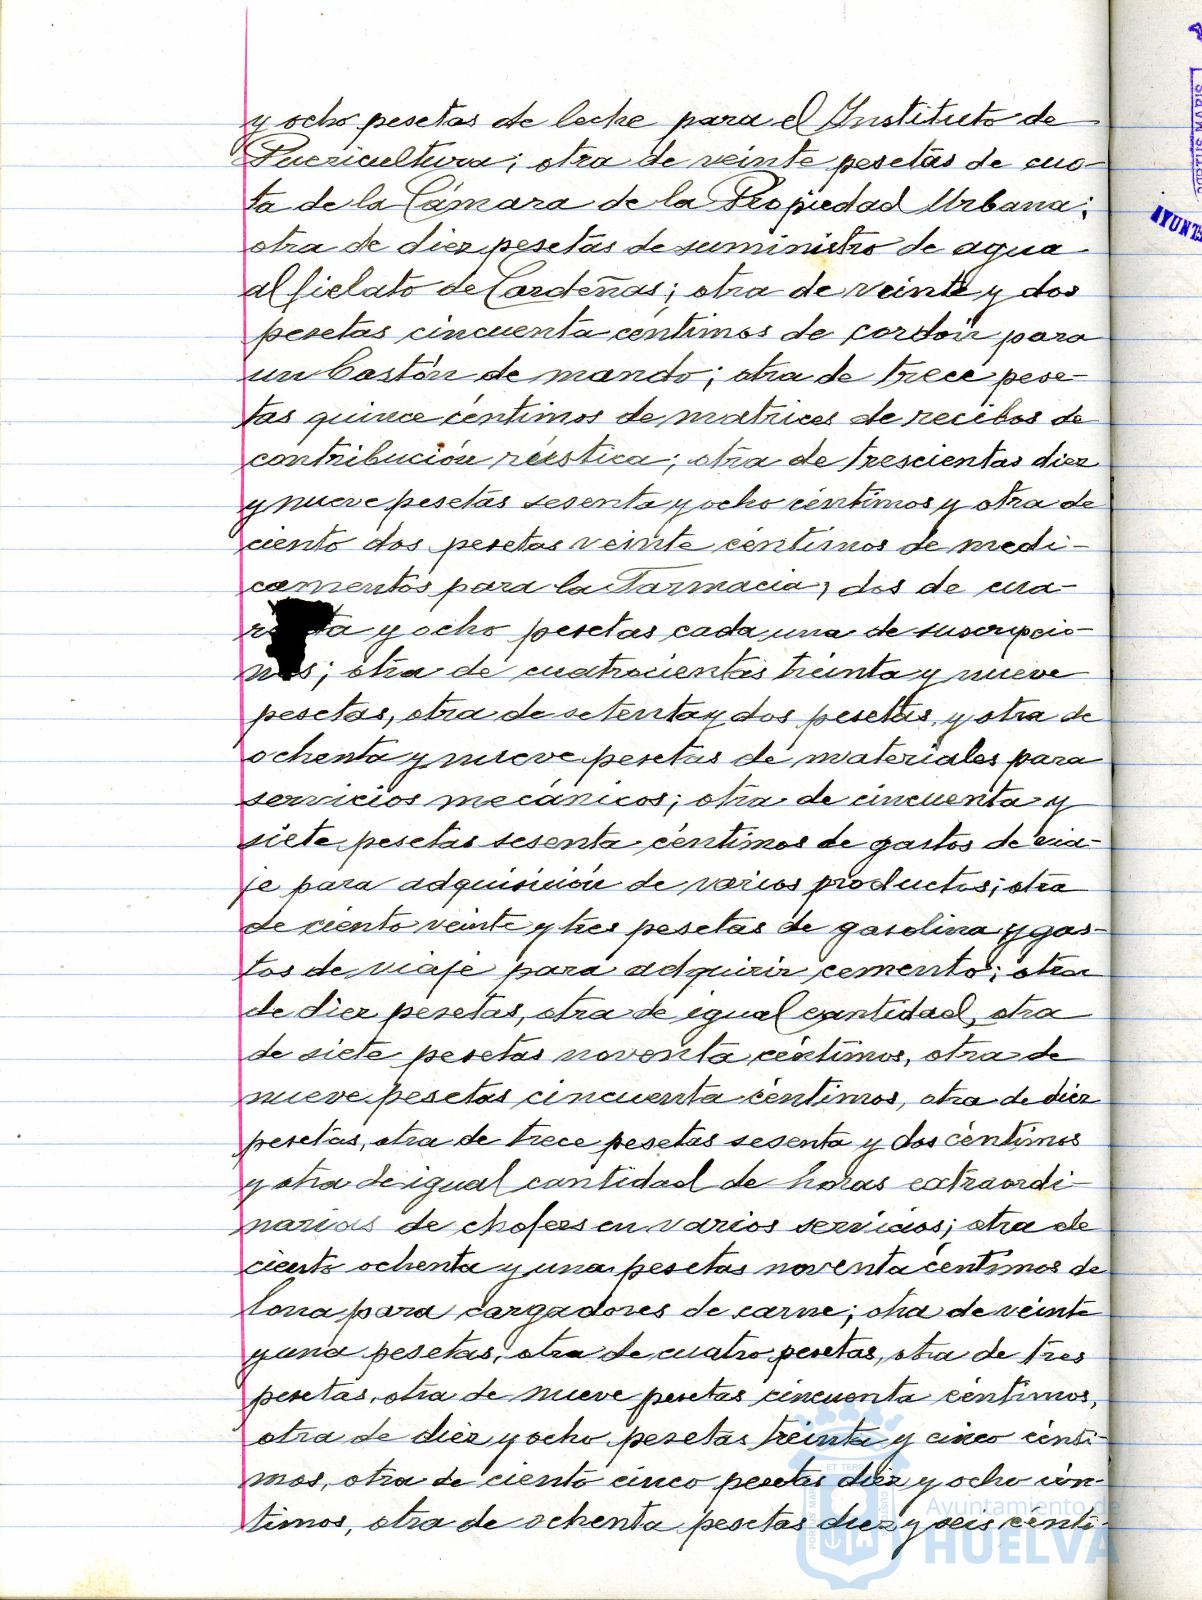 y ocho pesetas de leche para el Instituto de
Puericultura; otra de veinte pesetas de cuo-
ta de la Cámara de la Propiedad Urbana;
otra de diez pesetas de suministro de agua
al fielato de Cardeñas; otra de veinte y dos
pesetas cincuenta céntimos de cordón para
un bastón de mando; otra de trece pese-
tas quince céntimos de matrices de recibos de
contribución rústica; otra de trescientas diez
y nueve pesetas sesenta y ocho céntimos y otra de
ciento dos pesetas veinte céntimos de medi-
camentos para la Farmacia; dos de cua-
y ocho pesetas cada una de suscripcio-
nes; otra de cuatrocientas treinta y nueve
pesetas, otra de setenta y dos pesetas, y otra de
ochenta y nueve pesetas de materiales para
servicios mecánicos; otra de cincuenta y
siete pesetas sesenta céntimos de gastos de via-
je para adquisición de varios productos; otra
de ciento veinte y tres pesetas de gasolina y gas-
tos de viaje para adquirir cemento; otra
de diez pesetas, otra de igual cantidad, otra
de siete pesetas noventa céntimos, otra de
nueve pesetas cincuenta céntimos, otra de diez
pesetas, otra de trece pesetas sesenta y dos céntimos
y otra de igual cantidad de horas extraordi-
narias de chofers en varios servicios; otra de
ciento ochenta y una pesetas noventa céntimos de
lona para cargadores de carne; otra de veinte
y una pesetas, otra de cuatro pesetas, otra de tres
pesetas, otra de nueve pesetas cincuenta céntimos,
otra de diez y ocho pesetas treinta y cinco cénti-
mos, otra de ciento cinco pesetas diez y ocho cén-
timos, otra de ochenta pesetas diez y seis cénti-
PORTUS MARIS
AYUNT
Ayuntamiento de
HUELVA